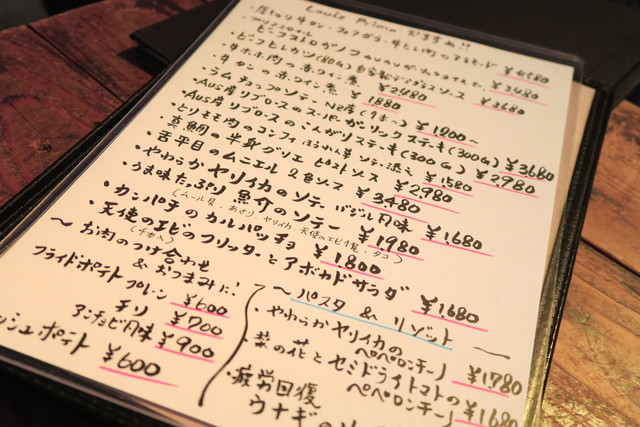 Louis Prime おすすめ!!
・厚切り牛タン・フォアグラ・牛ヒレ肉のアラモード ¥4580
・ビーフストロガノフ ¥3480
・ビーフヒレカツ(80g) 自家製デミグラスソース ¥3680
・牛ホホ肉の赤ワイン煮 ¥2480
・牛タンの赤ワイン煮 ¥1880
・ラムチョップソテー NZ産(1本〜) ¥1200〜
・Aus産リブロースのスーパーガーリックステーキ(300G) ¥3680
・Aus産リブロースのこんがりステーキ(300G) ¥2980
・とりモモ肉のコンフィ ほうれん草ソテー添え ¥1580
・真鯛の半身グリエ ピストゥソース ¥2980
・舌平目のムニエル 2色ソース ¥3480
・やわらかヤリイカのソテー バジル風味 ¥1,680
・うま味たっぷり魚介のソテー ¥1980
(ムール貝・あさり・ヤリイカ・天使のエビ1尾・タコ)
・カンパチのカルパッチョ ¥1,800
・天使のエビのフリッターとアボカドサラダ ¥1,680
〜お肉のつけ合わせ
&おつまみに!
フライドポテト プレーン ¥600
チリ ¥700
アンチョビ風味 ¥900
ッシュポテト ¥600
〜パスタ & リゾット〜
・やわらかヤリイカの
ペペロンチーノ ¥1,780
・菜の花とセミドライトマトの
ペペロンチーノ ¥1680
・疲労回復
ウナギの